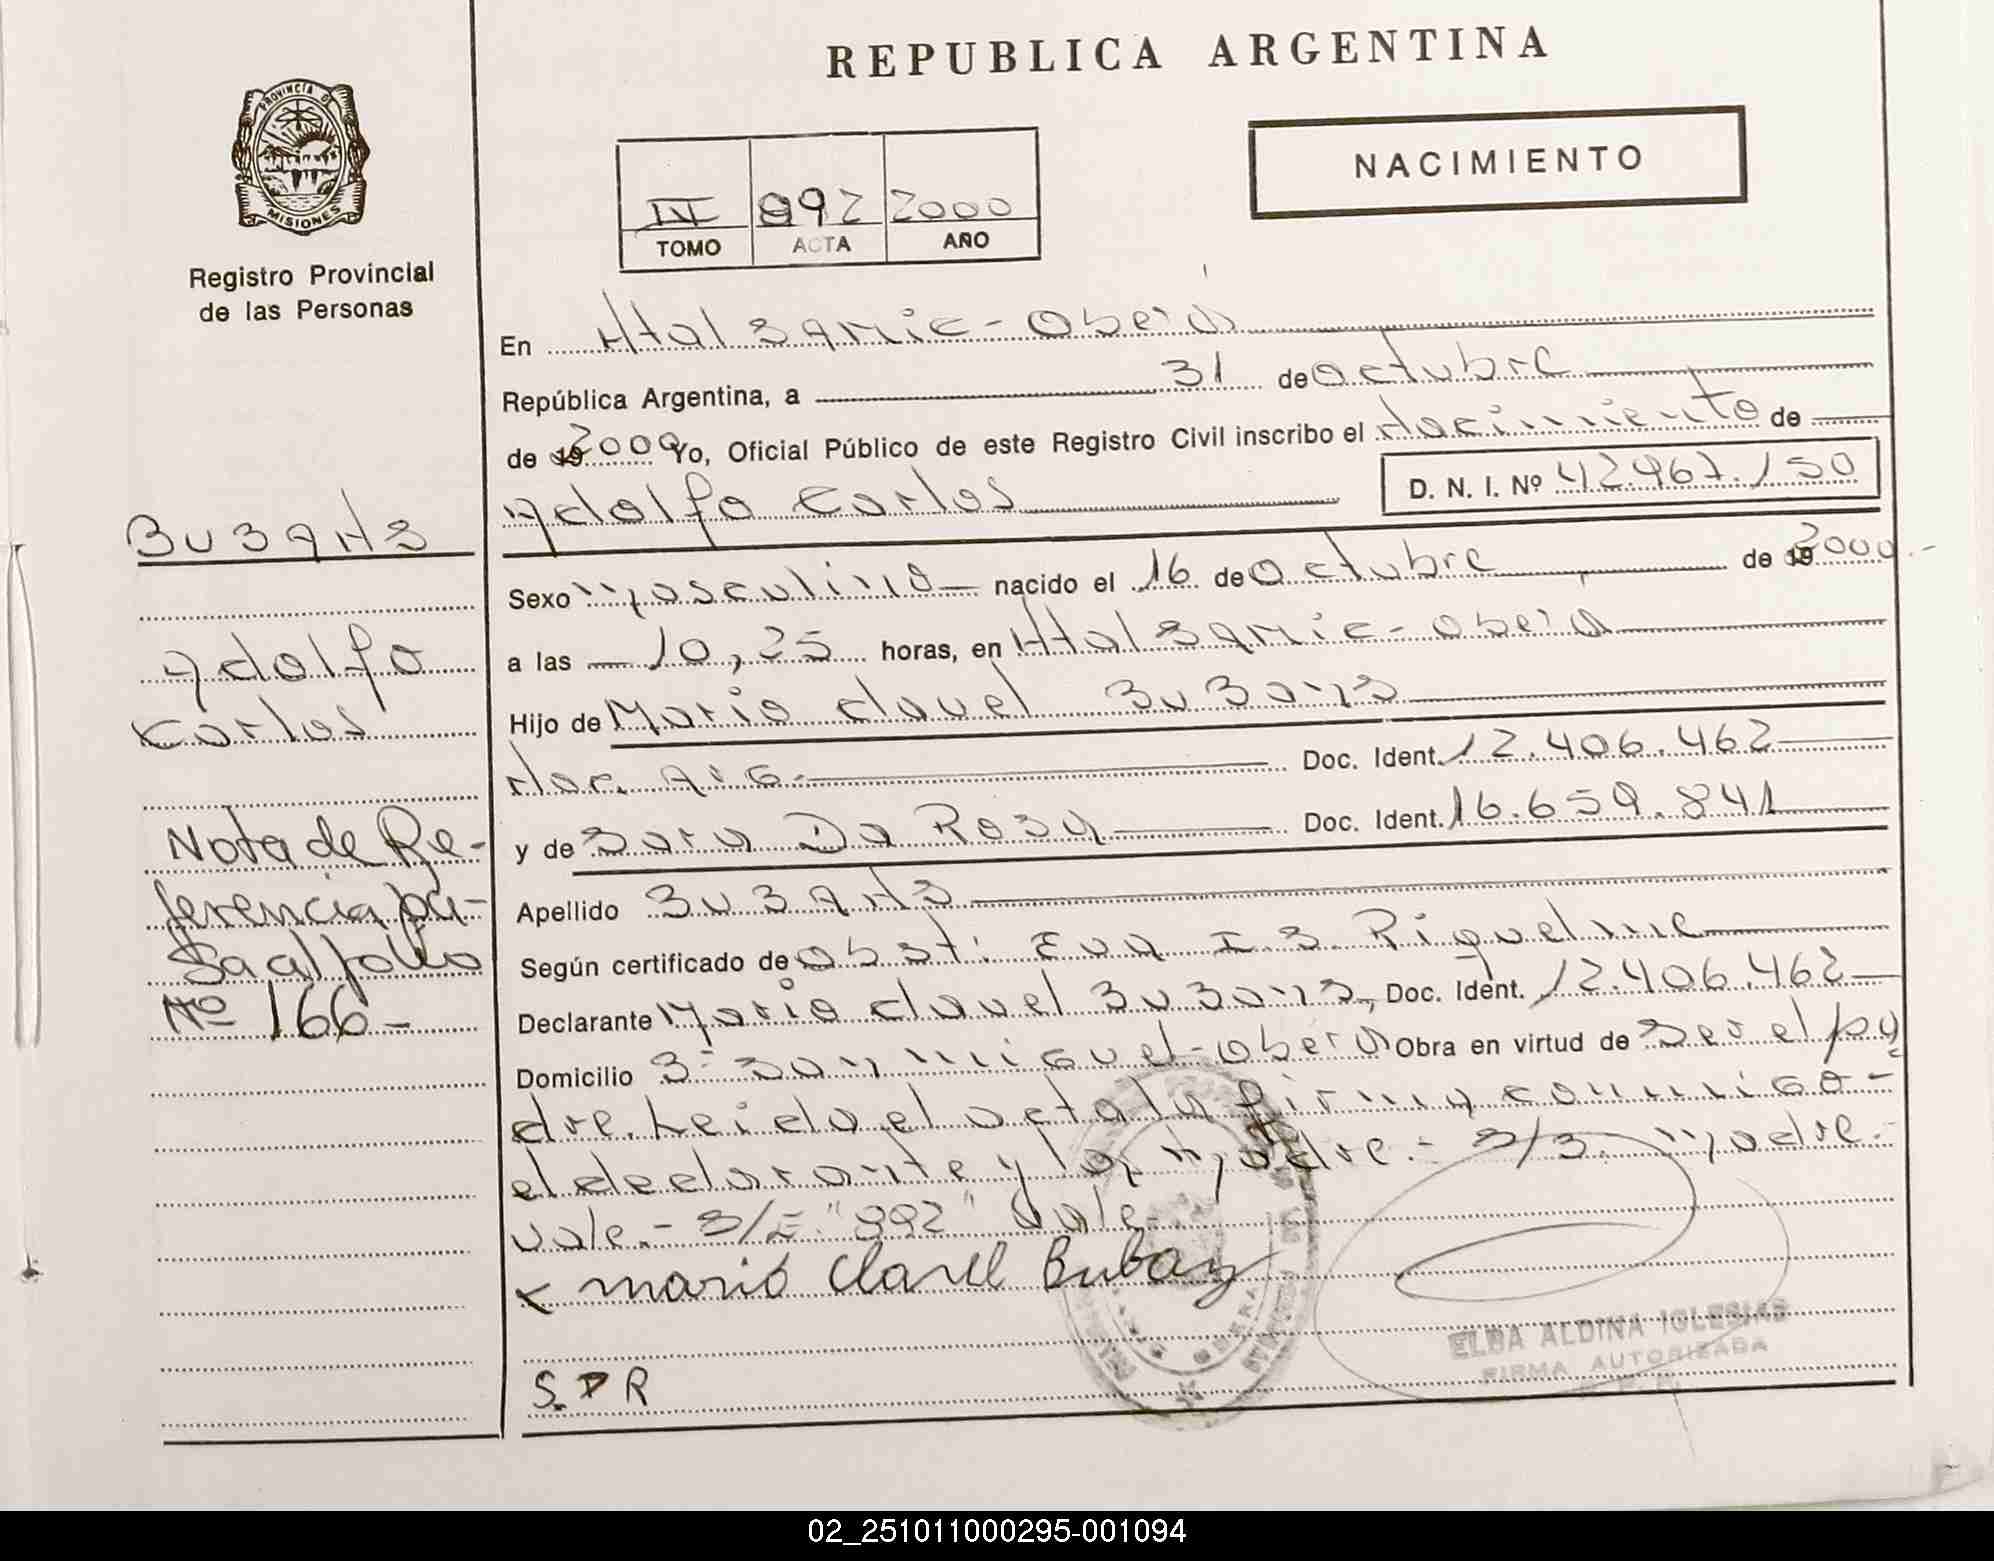 REPUBLICA ARGENTINA
PROVINCIA DE
MISIONES
Registro Provincial
de las Personas
NACIMIENTO
IV 892 2000
TOMO ACTA AÑO
En Htal Samic - Oberá
República Argentina, a 31 de Octubre
de 2000 Yo, Oficial Público de este Registro Civil inscribo el Nacimiento de
Adolfo Carlos D. N. I. Nº 42.467.150
Sexo Masculino nacido el 16 de Octubre de 2000.-
a las 10,25 horas, en Htal Samic - Oberá
Hijo de Mario Clavel
Nac. Arg. Doc. Ident. 12.406.462
y de Sara Da Rosa Doc. Ident. 16.659.841
Apellido
Según certificado de Obst: Eva I S. Riquelme
Declarante Mario Clavel Doc. Ident. 12.406.462
Domicilio Bº San Miguel - Oberá Obra en virtud de ser el pa
dre. Leida el acta la firma conmigo -
el declarante y la madre.- S/B. madre.-
vale.- S/E. "892" Vale.-
Mario Clavel
S. D R
ELBA ALDINA IGLESIAS
FIRMA AUTORIZADA
R. P. P.
Adolfo
Carlos
Nota de Re-
ferencia pa-
sa al folio
Nº 166-
02_251011000295-001094